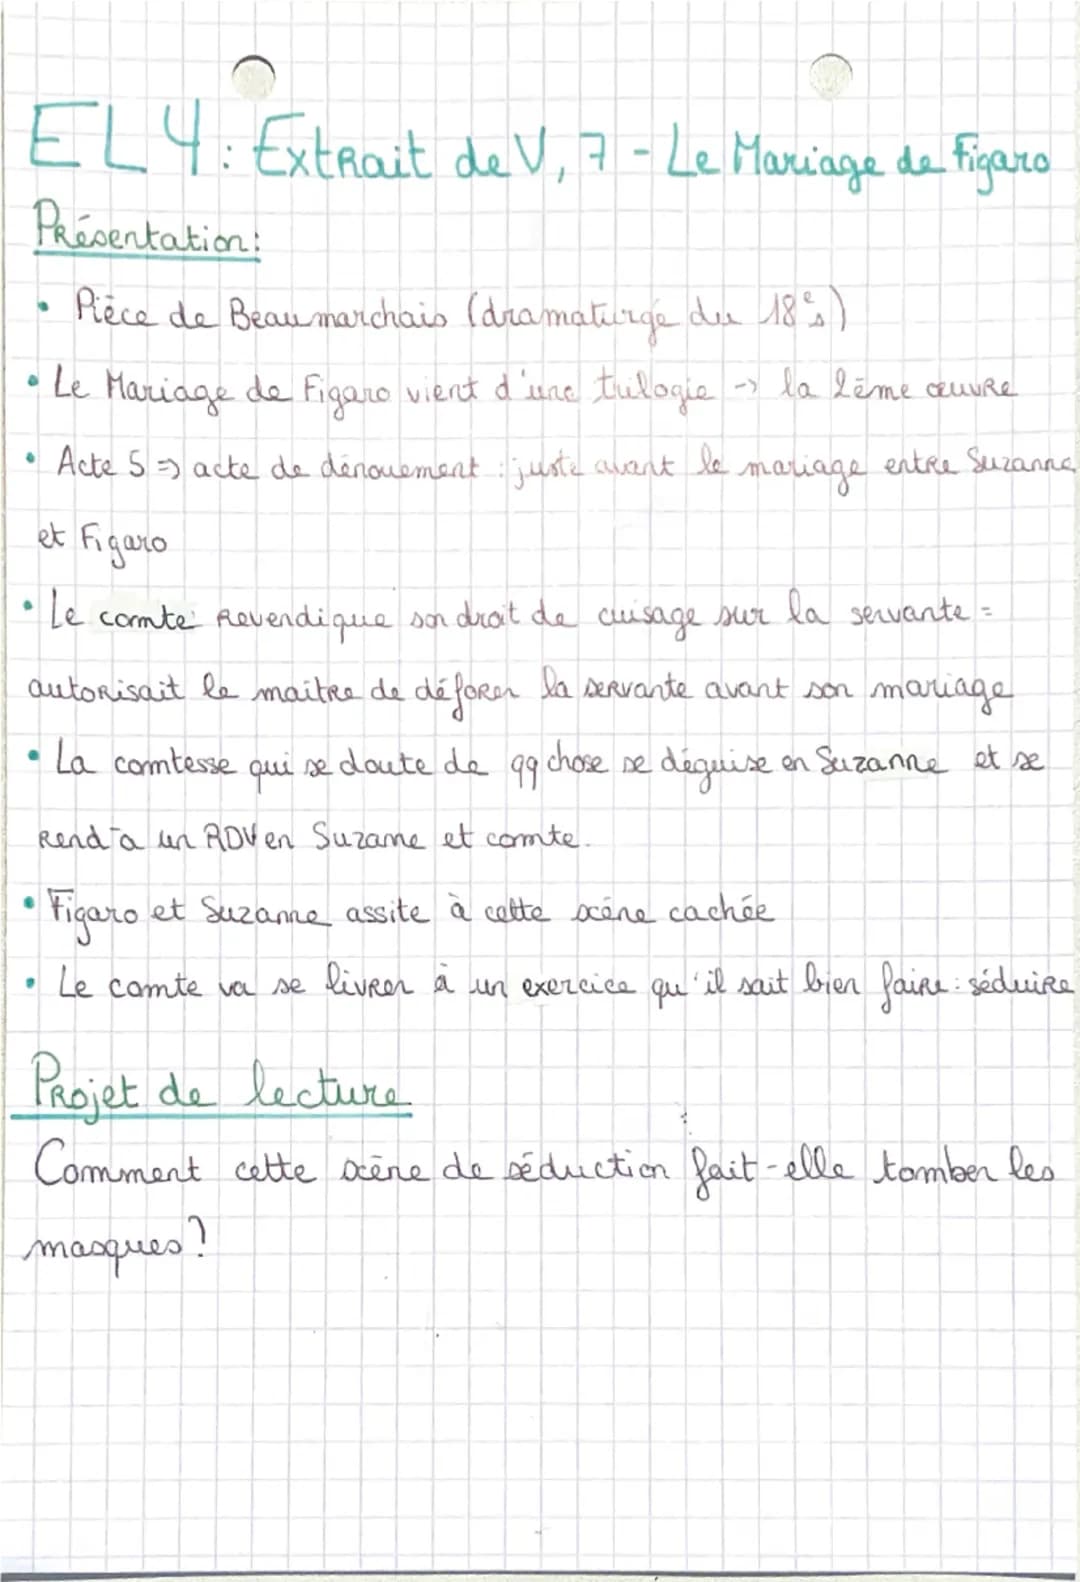 EL4: Extrait de V, 7 - Le Mariage de Figaro
Présentation:
• Pièce de Beaumarchais (dramaturge du 18e s)
• Le Mariage de Figaro vient d'une trilogie -> la 2ème œuvre
• Acte 5 => acte de dénouement : juste avant le mariage entre Suzanne
et Figaro
• Le comte revendique son droit de cuisage sur la servante =
autorisait le maître de déforer la servante avant son mariage
• La comtesse qui se doute de qq chose se déguise en Suzanne et se
rend à un RDV en Suzame et comte.
• Figaro et Suzanne assite à cette scène cachée
• Le comte va se livrer à un exercice qu'il sait bien faire : séduire
Projet de lecture
Comment cette scène de séduction fait-elle tomber les
masques?